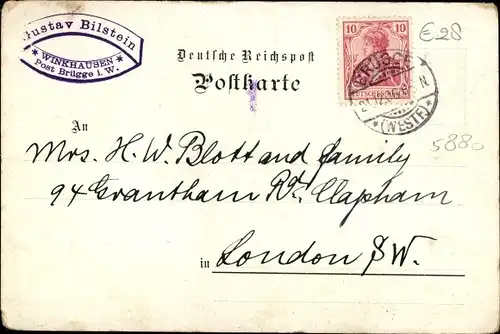 Gustav Bilstein
* WINKHAUSEN *
Post Brügge i. W.
Deutsche Reichspost
Postkarte
10 10
BRÜGGE
* (WESTF) *
€28
5880
An
Mrs. H. W. Blott and family
94 Grantham Rd. Clapham
in London S.W.